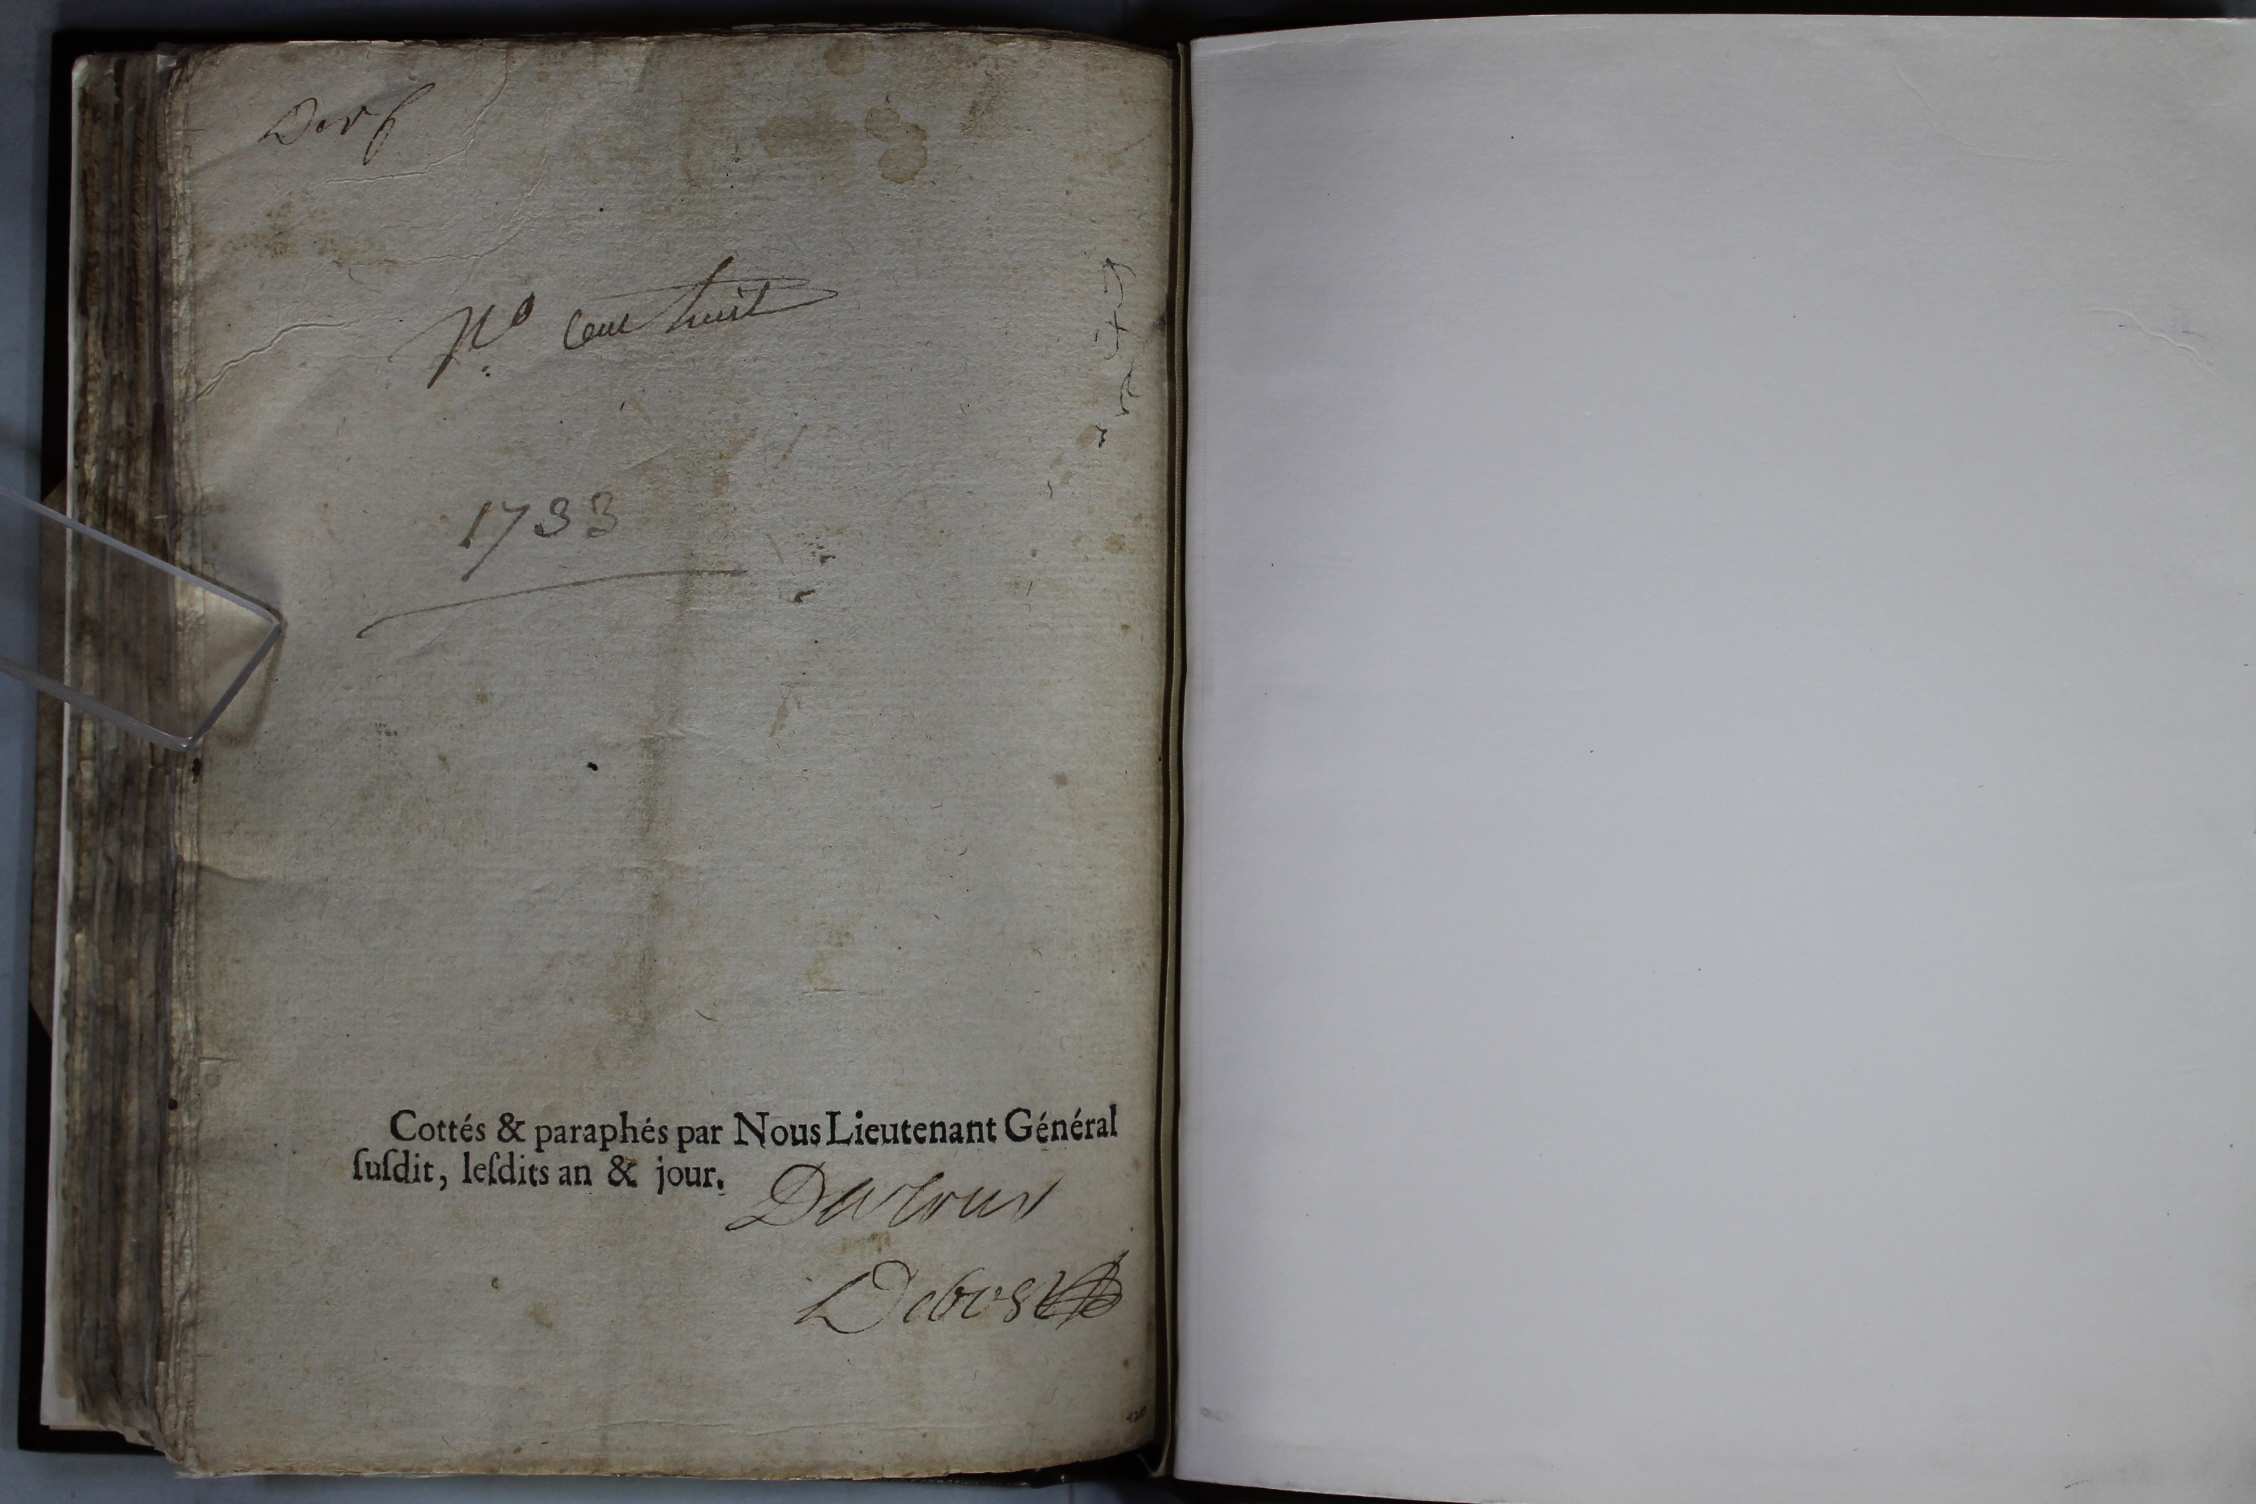 N° cent huit
1733
Cottés & paraphés par Nous Lieutenant Général
ſuſdit, leſdits an & jour.
Debost